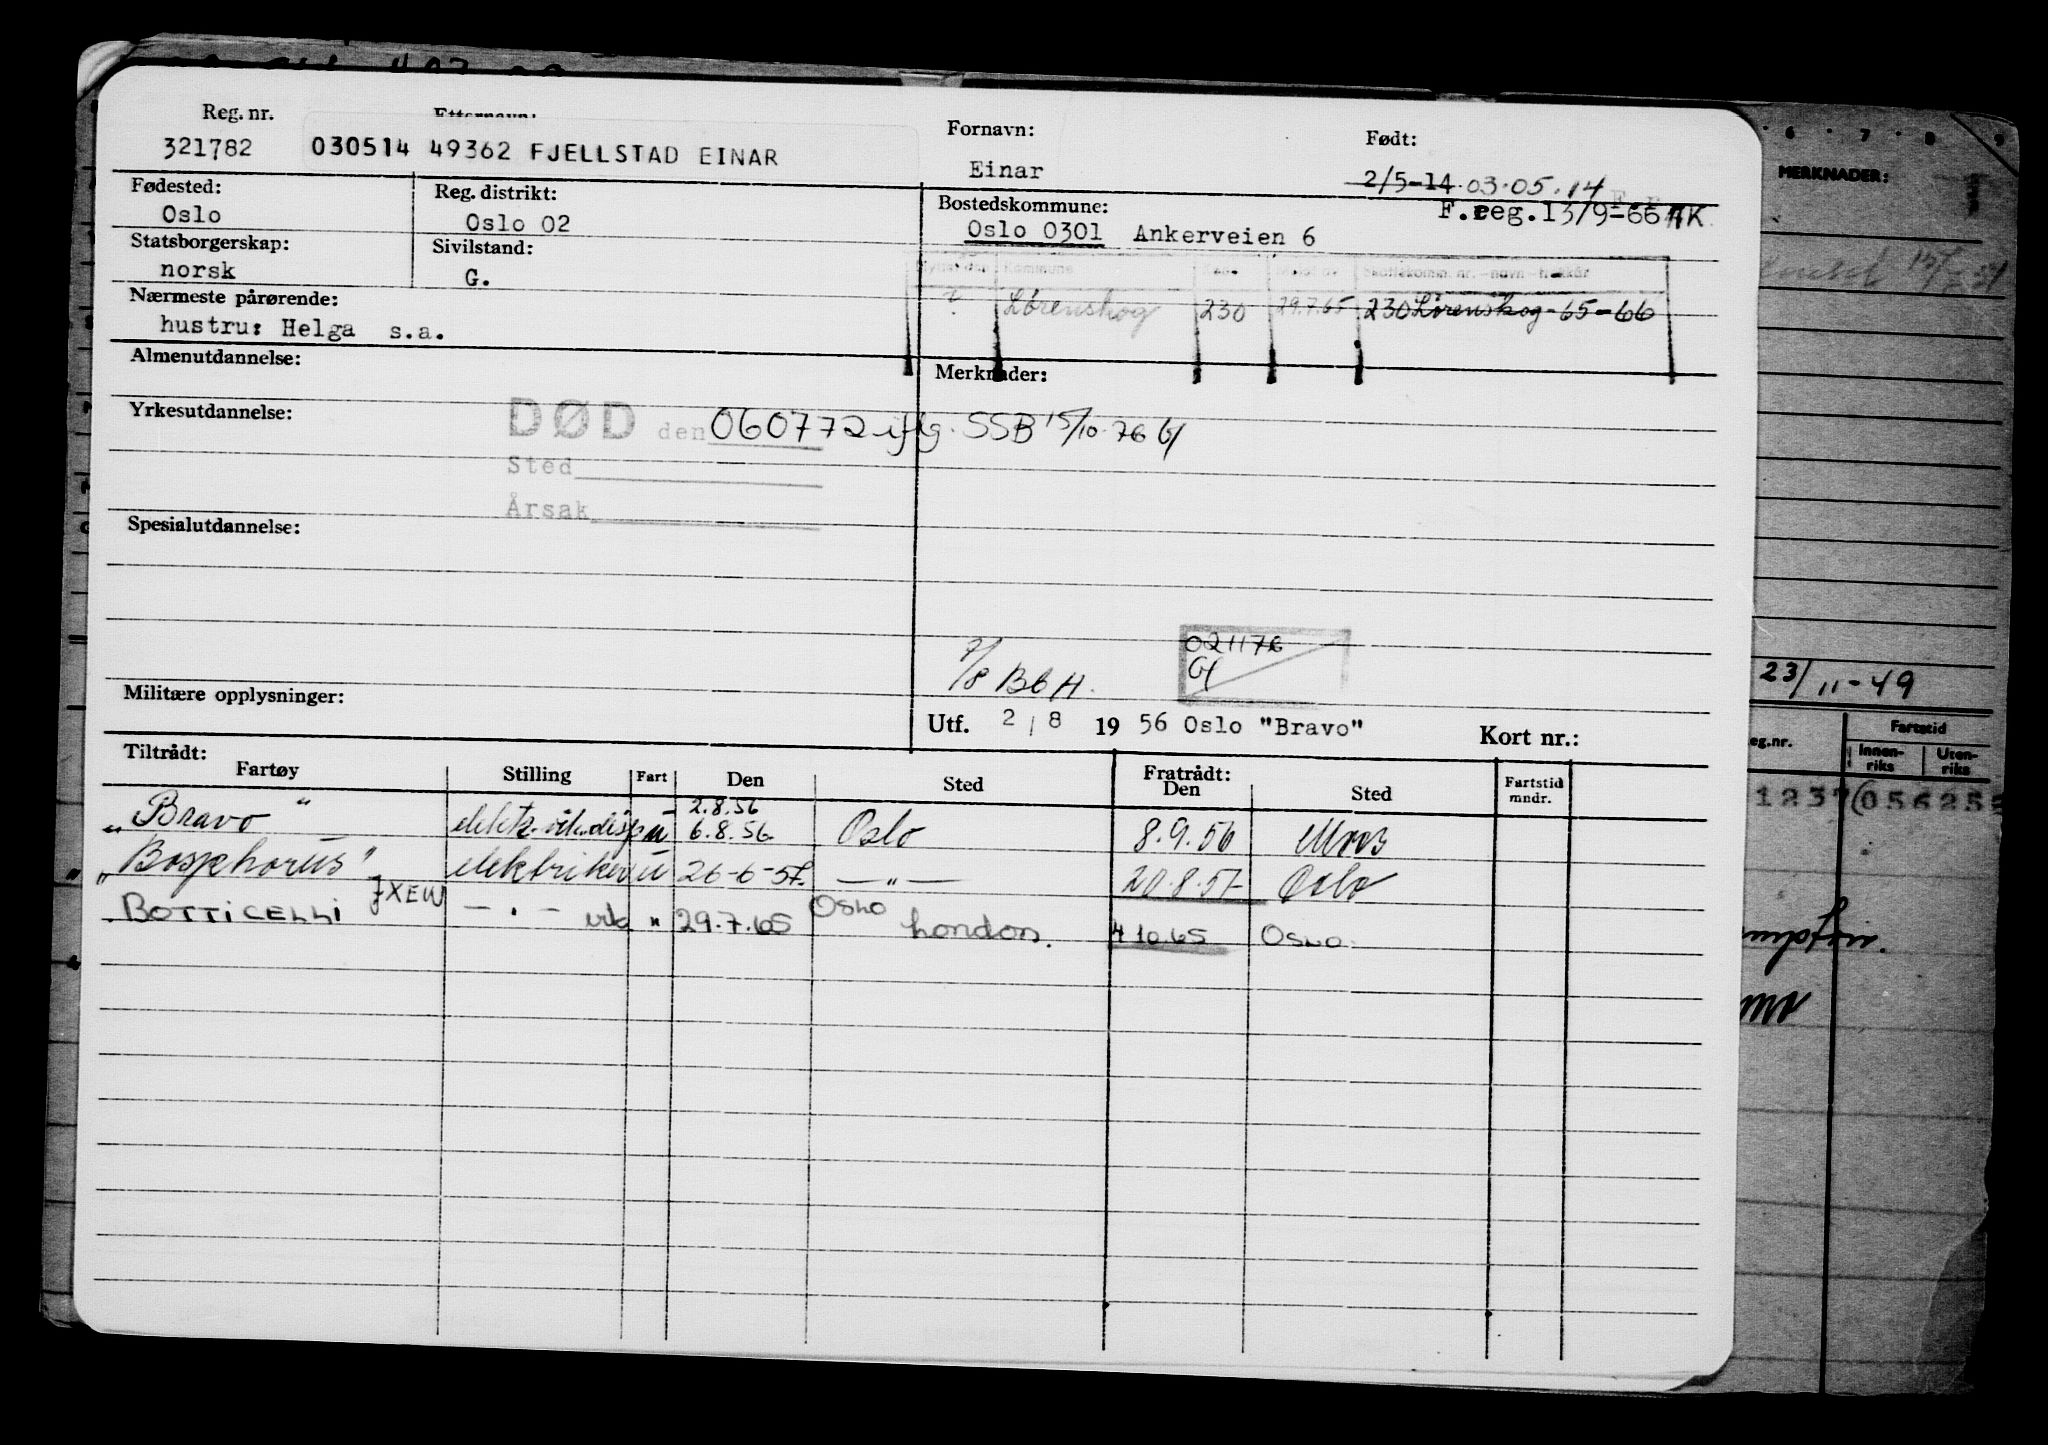 Reg. nr. Etternavn: Fornavn: Født:
321782 030514 49362 FJELLSTAD EINAR Einar 2/5-14 03.05.14
Fødested: Reg. distrikt: Bostedskommune: F.reg.13/9-66 AK
Oslo Oslo 02 Oslo 0301 Ankerveien 6
Statsborgerskap: Sivilstand:
norsk G.
Kommune
Nærmeste pårørende: ? Lørenskog 230 29.7.65 230 Lörenskog-65-66
hustru: Helga s.a.
Almenutdannelse: Merknader:
Yrkesutdannelse: DØD den 060772 iflg. SSB 15/10-76
Sted
Årsak
Spesialutdannelse:
021176
7/8 BbH.
Militære opplysninger:
Utf. 2/8 1956 Oslo "Bravo" Kort nr.:
Tiltrådt: Fratrådt:
Fartøy Stilling Fart Den Sted Den Sted Fartstid mndr.
2.8.56
"Bravo" u 6.8.56 Oslo 8.9.56 Moss
"Bosphorus" elektriker u 26-6-57. —"— 20.8.57 Oslo
BOTTICELLI JXEW — " — " 29.7.65 OSLO London. 4 10 65 OSLO.
6 7 8 9
MERKNADER:
23/11-49
eg.nr. Fartstid
Innen-riks Uten-riks
1237 056255